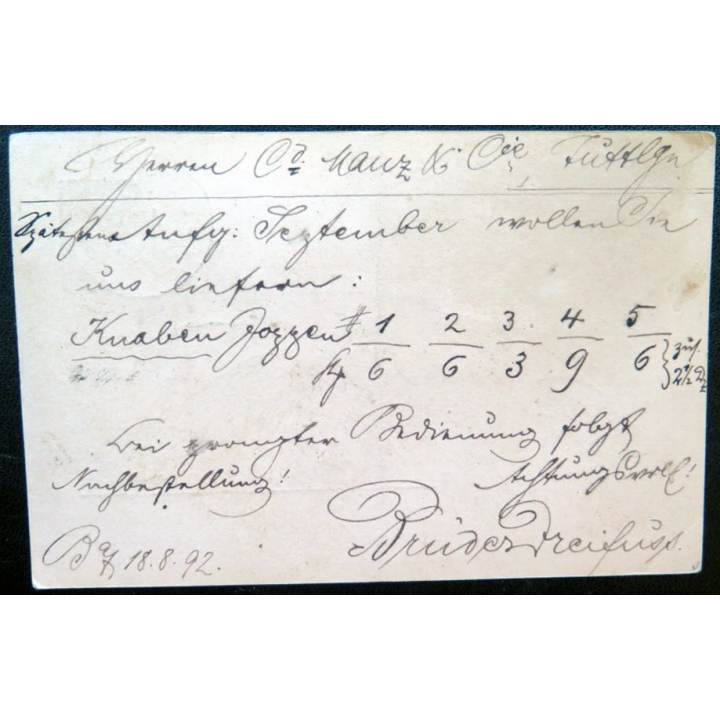 Herren Cd. Manz & Cie, Tuttlgn
Spätestens Anfg: September wollen Sie
uns liefern:
Knaben Joppen # 1 2 3 4 5
6 6 3 9 6 } zus. 2 1/2 Dz
Bei prompter Bedienung folgt
Nachbestellung! Achtungsvoll!
Brüder Dreifuss.
18.8.92.